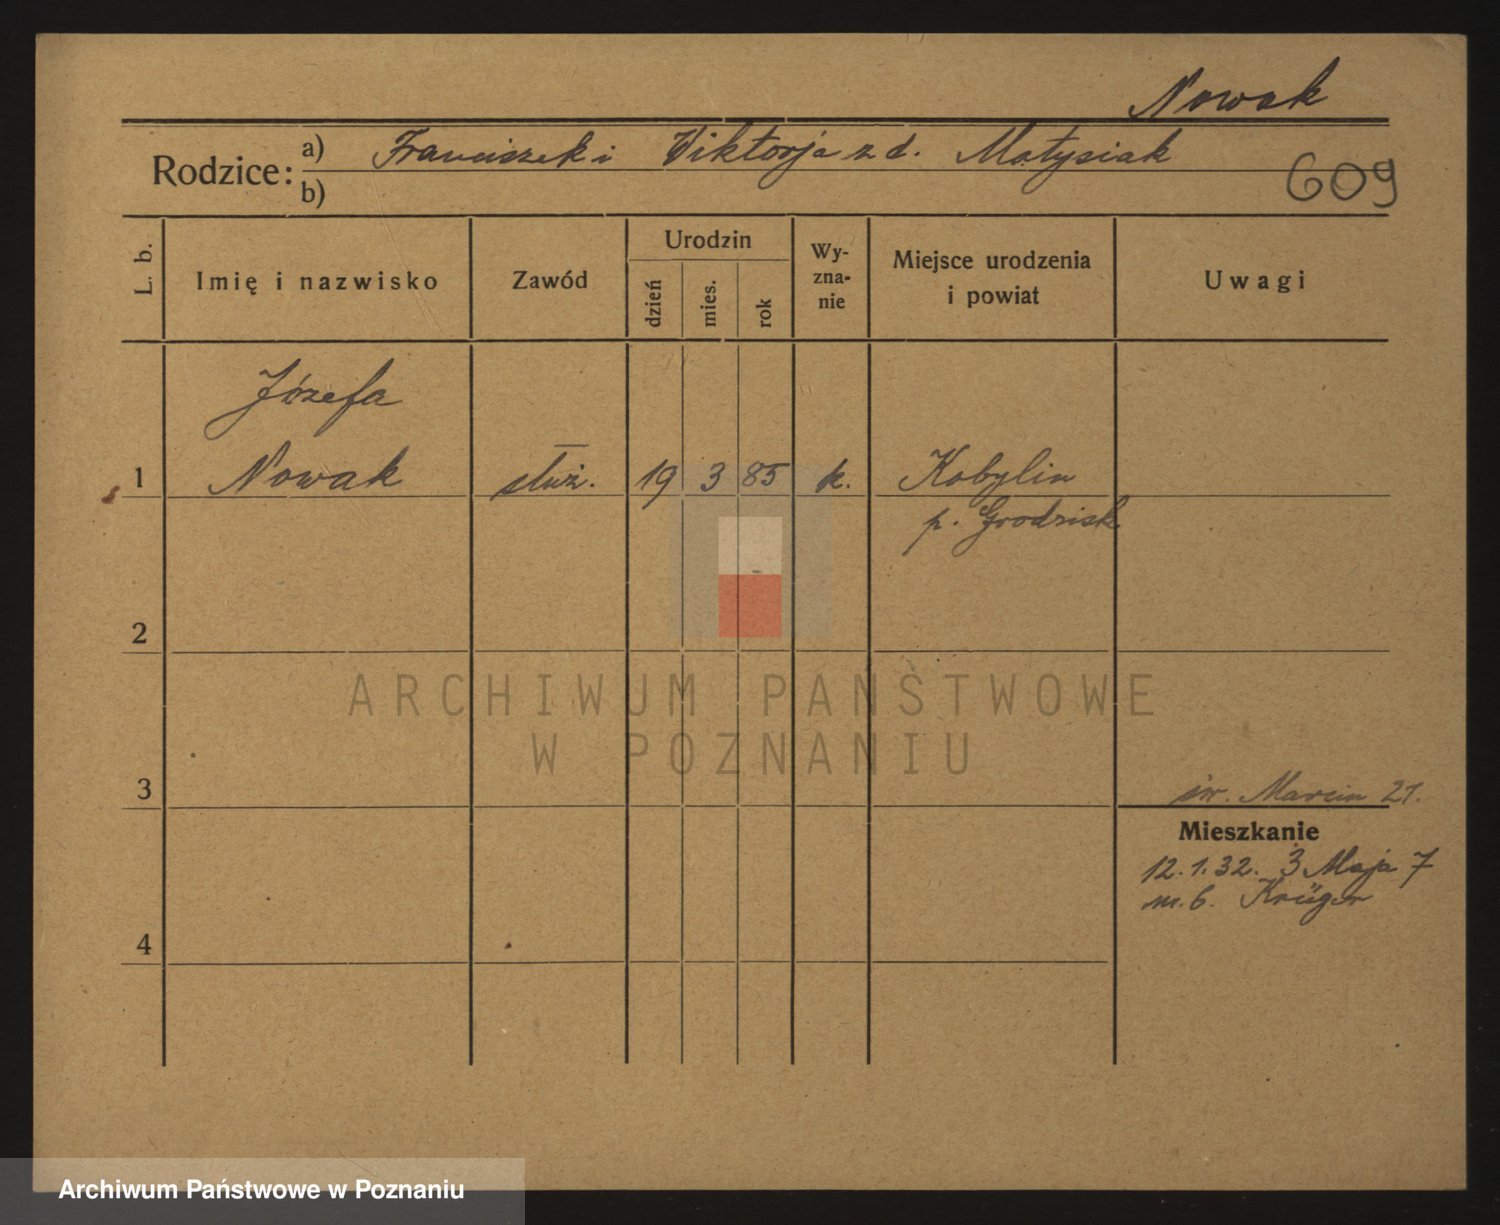 Nowak
Rodzice: a) Franciszek i Wiktorja z d. Matysiak
b)
609
L. b.
Imię i nazwisko
Zawód
Urodzin
dzień
mies.
rok
Wy-
zna-
nie
Miejsce urodzenia
i powiat
Uwagi
Józefa
1 Nowak służ. 19 3 85 k. Kobylin
p. Grodzisk
2
ARCHIWUM PAŃSTWOWE
W POZNANIU
3
św. Marcin 21.
Mieszkanie
12.1.32. 3 Maja 7
m. 6. Krüger
4
Archiwum Państwowe w Poznaniu